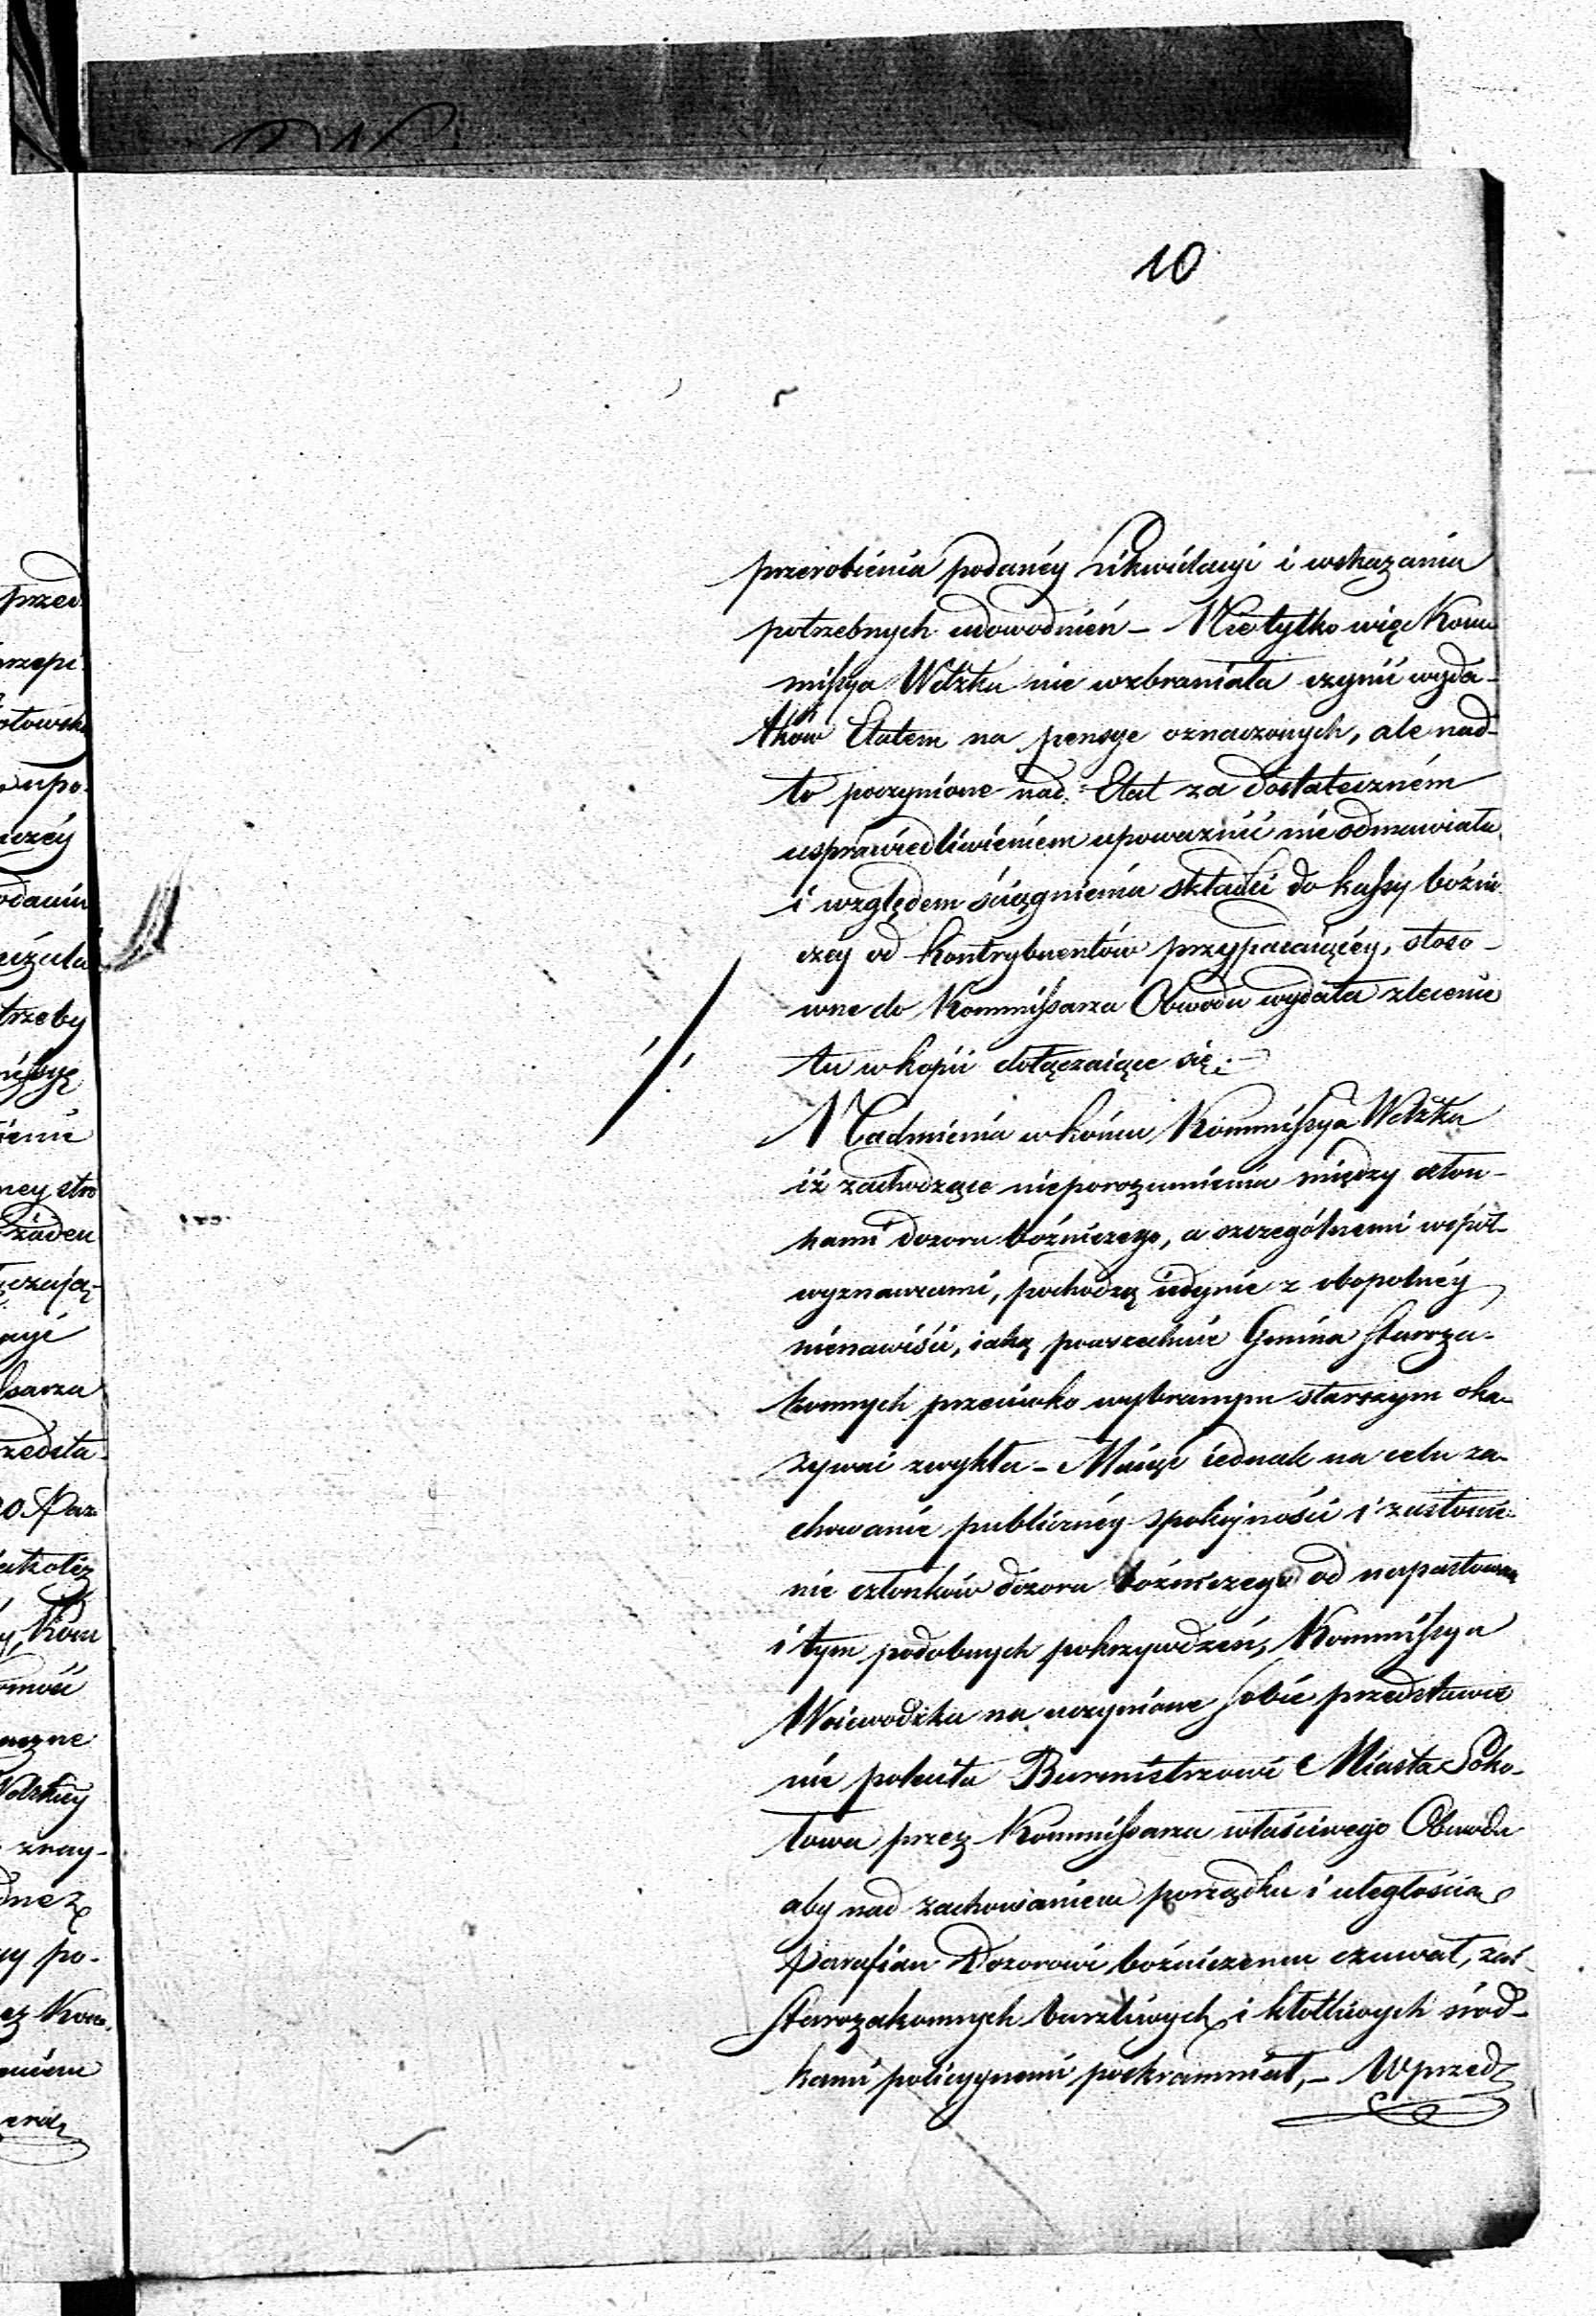 10
przerobienia podanéy Likwidacyi i wskazania
potrzebnych udowodnień – Nie tylko więc Kom
missya Wdzka nie wzbraniała czynić wyda-
tków Etatem na pensye oznaczonych, ale nad-
to poczynione nad Etat za dostateczném
usprawiedliwieniem upoważnić nie odmawiała
i względem ściągnienia składki do kassy boźni
czey od kontrybuentów przypadaiącéy, stoso-
wne do Kommissarza Obwodu wydała zlecenie
tu w kopii dołączaiące się.–
Nadmienia w końcu Kommissya Wdzka
iż zachodzące nieporozumienia między człon-
kami dozoru bóźniczego, a szczególnemi współ-
wyznawcami, pochodzą iedynie z obopolnéy
nienawiści, iaką powszechnie Gmina staroza-
konnych przeciwko wybranym starszym oka-
zywać zwykła – Maiąc iednak na celu za-
chowanie publicznéy spokojności i zasłonie-
nie członków dozoru bóźniczego od napastowań
i tym podobnych pokrzywdzeń, Kommissya
Woiewodzka na uczynione sobie przedstawie
nie poleciła Burmistrzowi Miasta Soko-
łowa przez Kommissarza właściwego Obwodu
aby nad zachowaniem porządku i uległością
Parafian Dozorowi boźniczemu czuwał, zaś
starozakonnych burzliwych i kłótliwych środ-
kami policyynemi poskramiał,– W przed